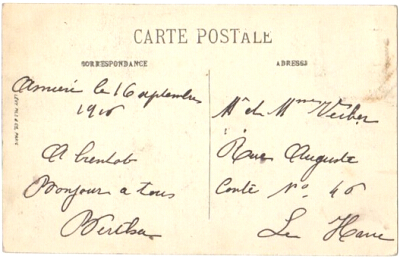 CARTE POSTALE
CORRESPONDANCE
ADRESSE
le 16 septembre
1916
A bientôt
Bonjour a tous
Bertha
Mr et Mme Veiber
Rue Auguste
Conté No. 46
Le Havre